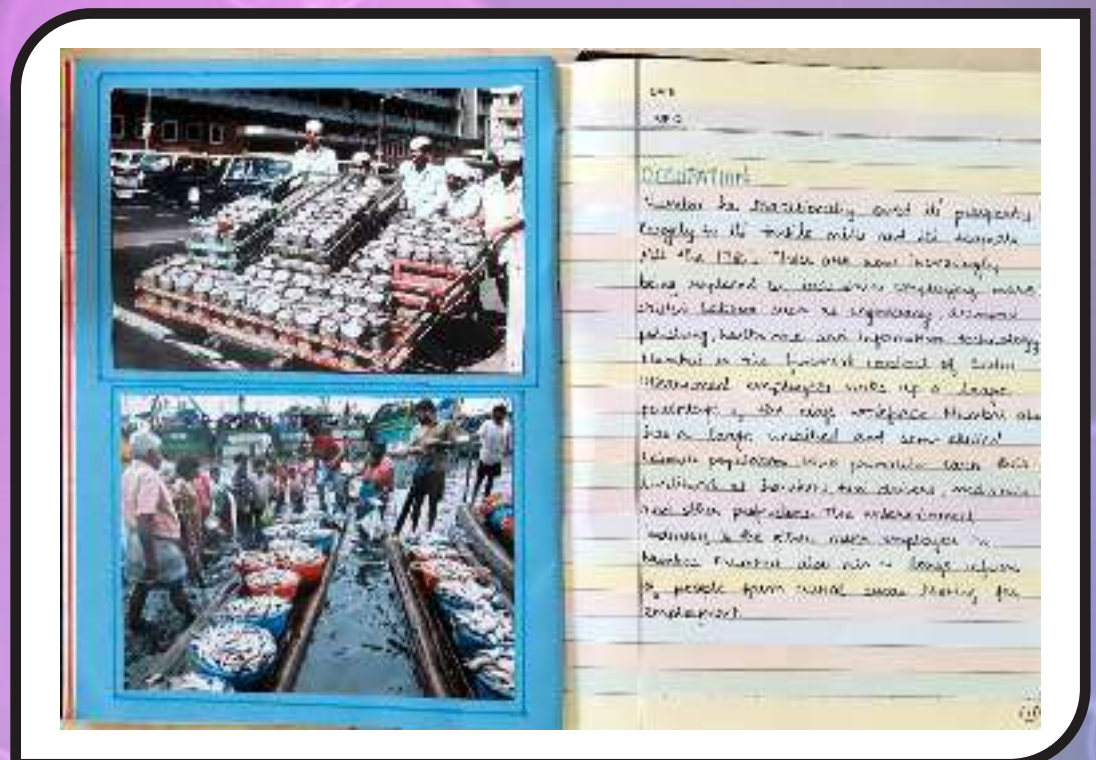 DATE
OCCUPATION
Mumbai has traditionally owed its prosperity
largely to its textile mills and its seaports
till the 1980s. These are now increasingly
being replaced by industries employing more
skilled labour such as engineering, diamond
polishing, healthcare and information technology
Mumbai is the financial capital of India
Government employees make up a large
percentage of the city's workforce Mumbai also
has a large unskilled and semi skilled
labour population who primarily earn their
livelihood as hawkers, taxi drivers, mechanics
and other professions. The entertainment
industry is the other major employer in
Mumbai. Mumbai also has a large
of people from rural areas looking for
employment